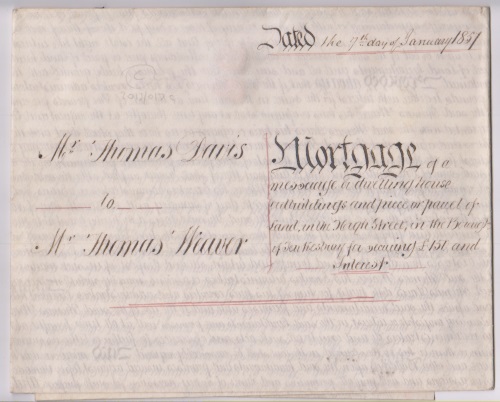 Dated the 7th day of January 1851
Mr Thomas Davis
to
Mr Thomas Weaver
Mortgage of a
messuage or dwelling house
outbuildings and piece or parcel of
land, in the High Street, in the Borough
of Tewkesbury for securing £151 and
Interest